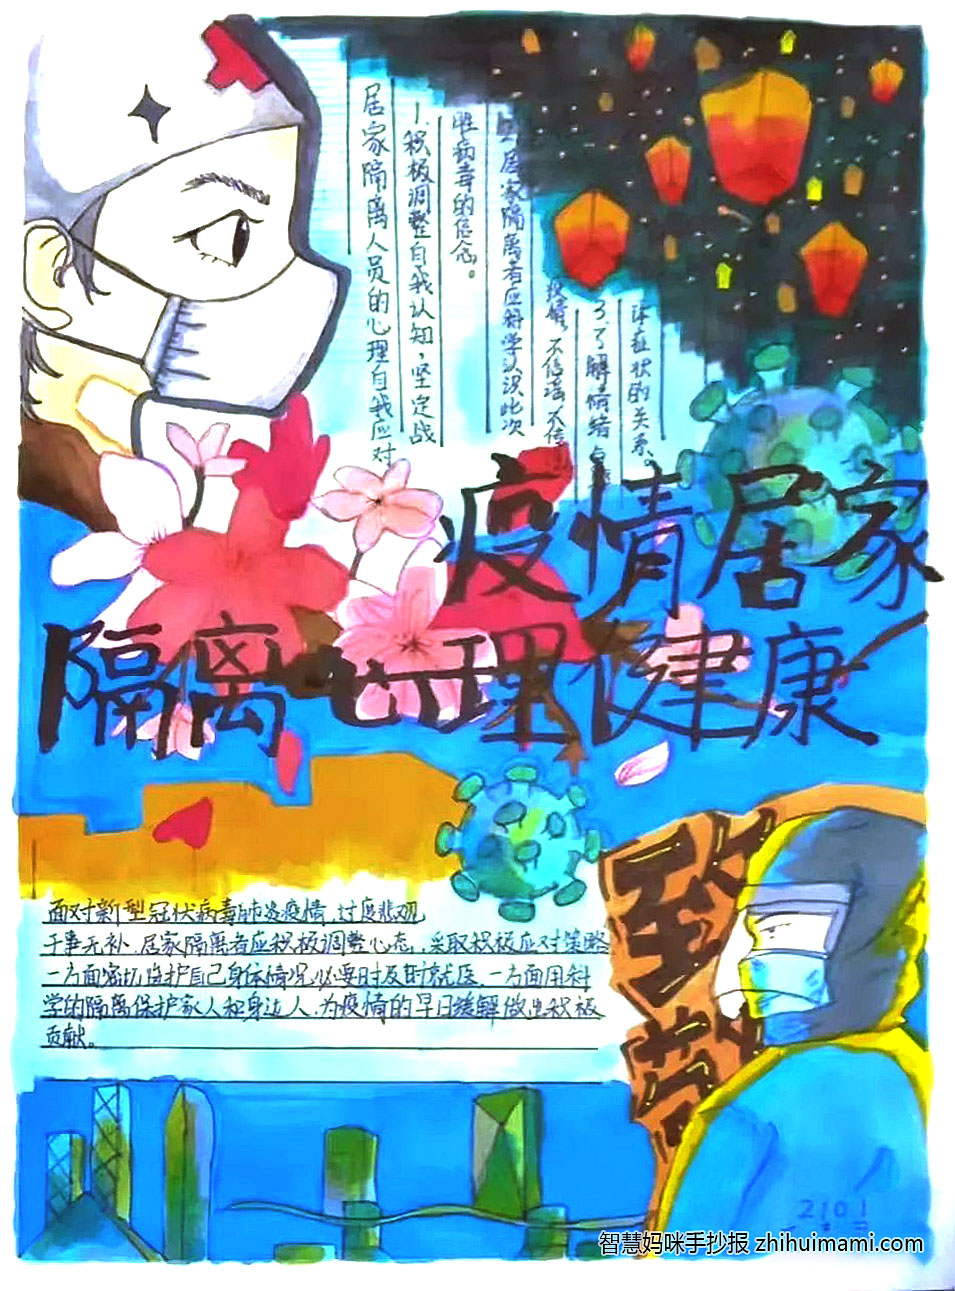 居家隔离人员的心理自我应对
1.积极调整自我认知,坚定战
胜病毒的信念。
居家隔离者应科学认识此次
疫情,不信谣不信
3.了解情绪
症状的关系。
疫情居家
隔离心理健康
面对新型冠状病毒肺炎疫情,过度悲观
于事无补.居家隔离者应积极调整心态,采取积极应对策略
一方面密切监护自己身体情况,必要时及时就医.一方面用科
学的隔离保护家人和身边人,为疫情的早日缓解做出积极
贡献。
致
劳
2101
智慧妈咪手抄报 zhihuimami.com